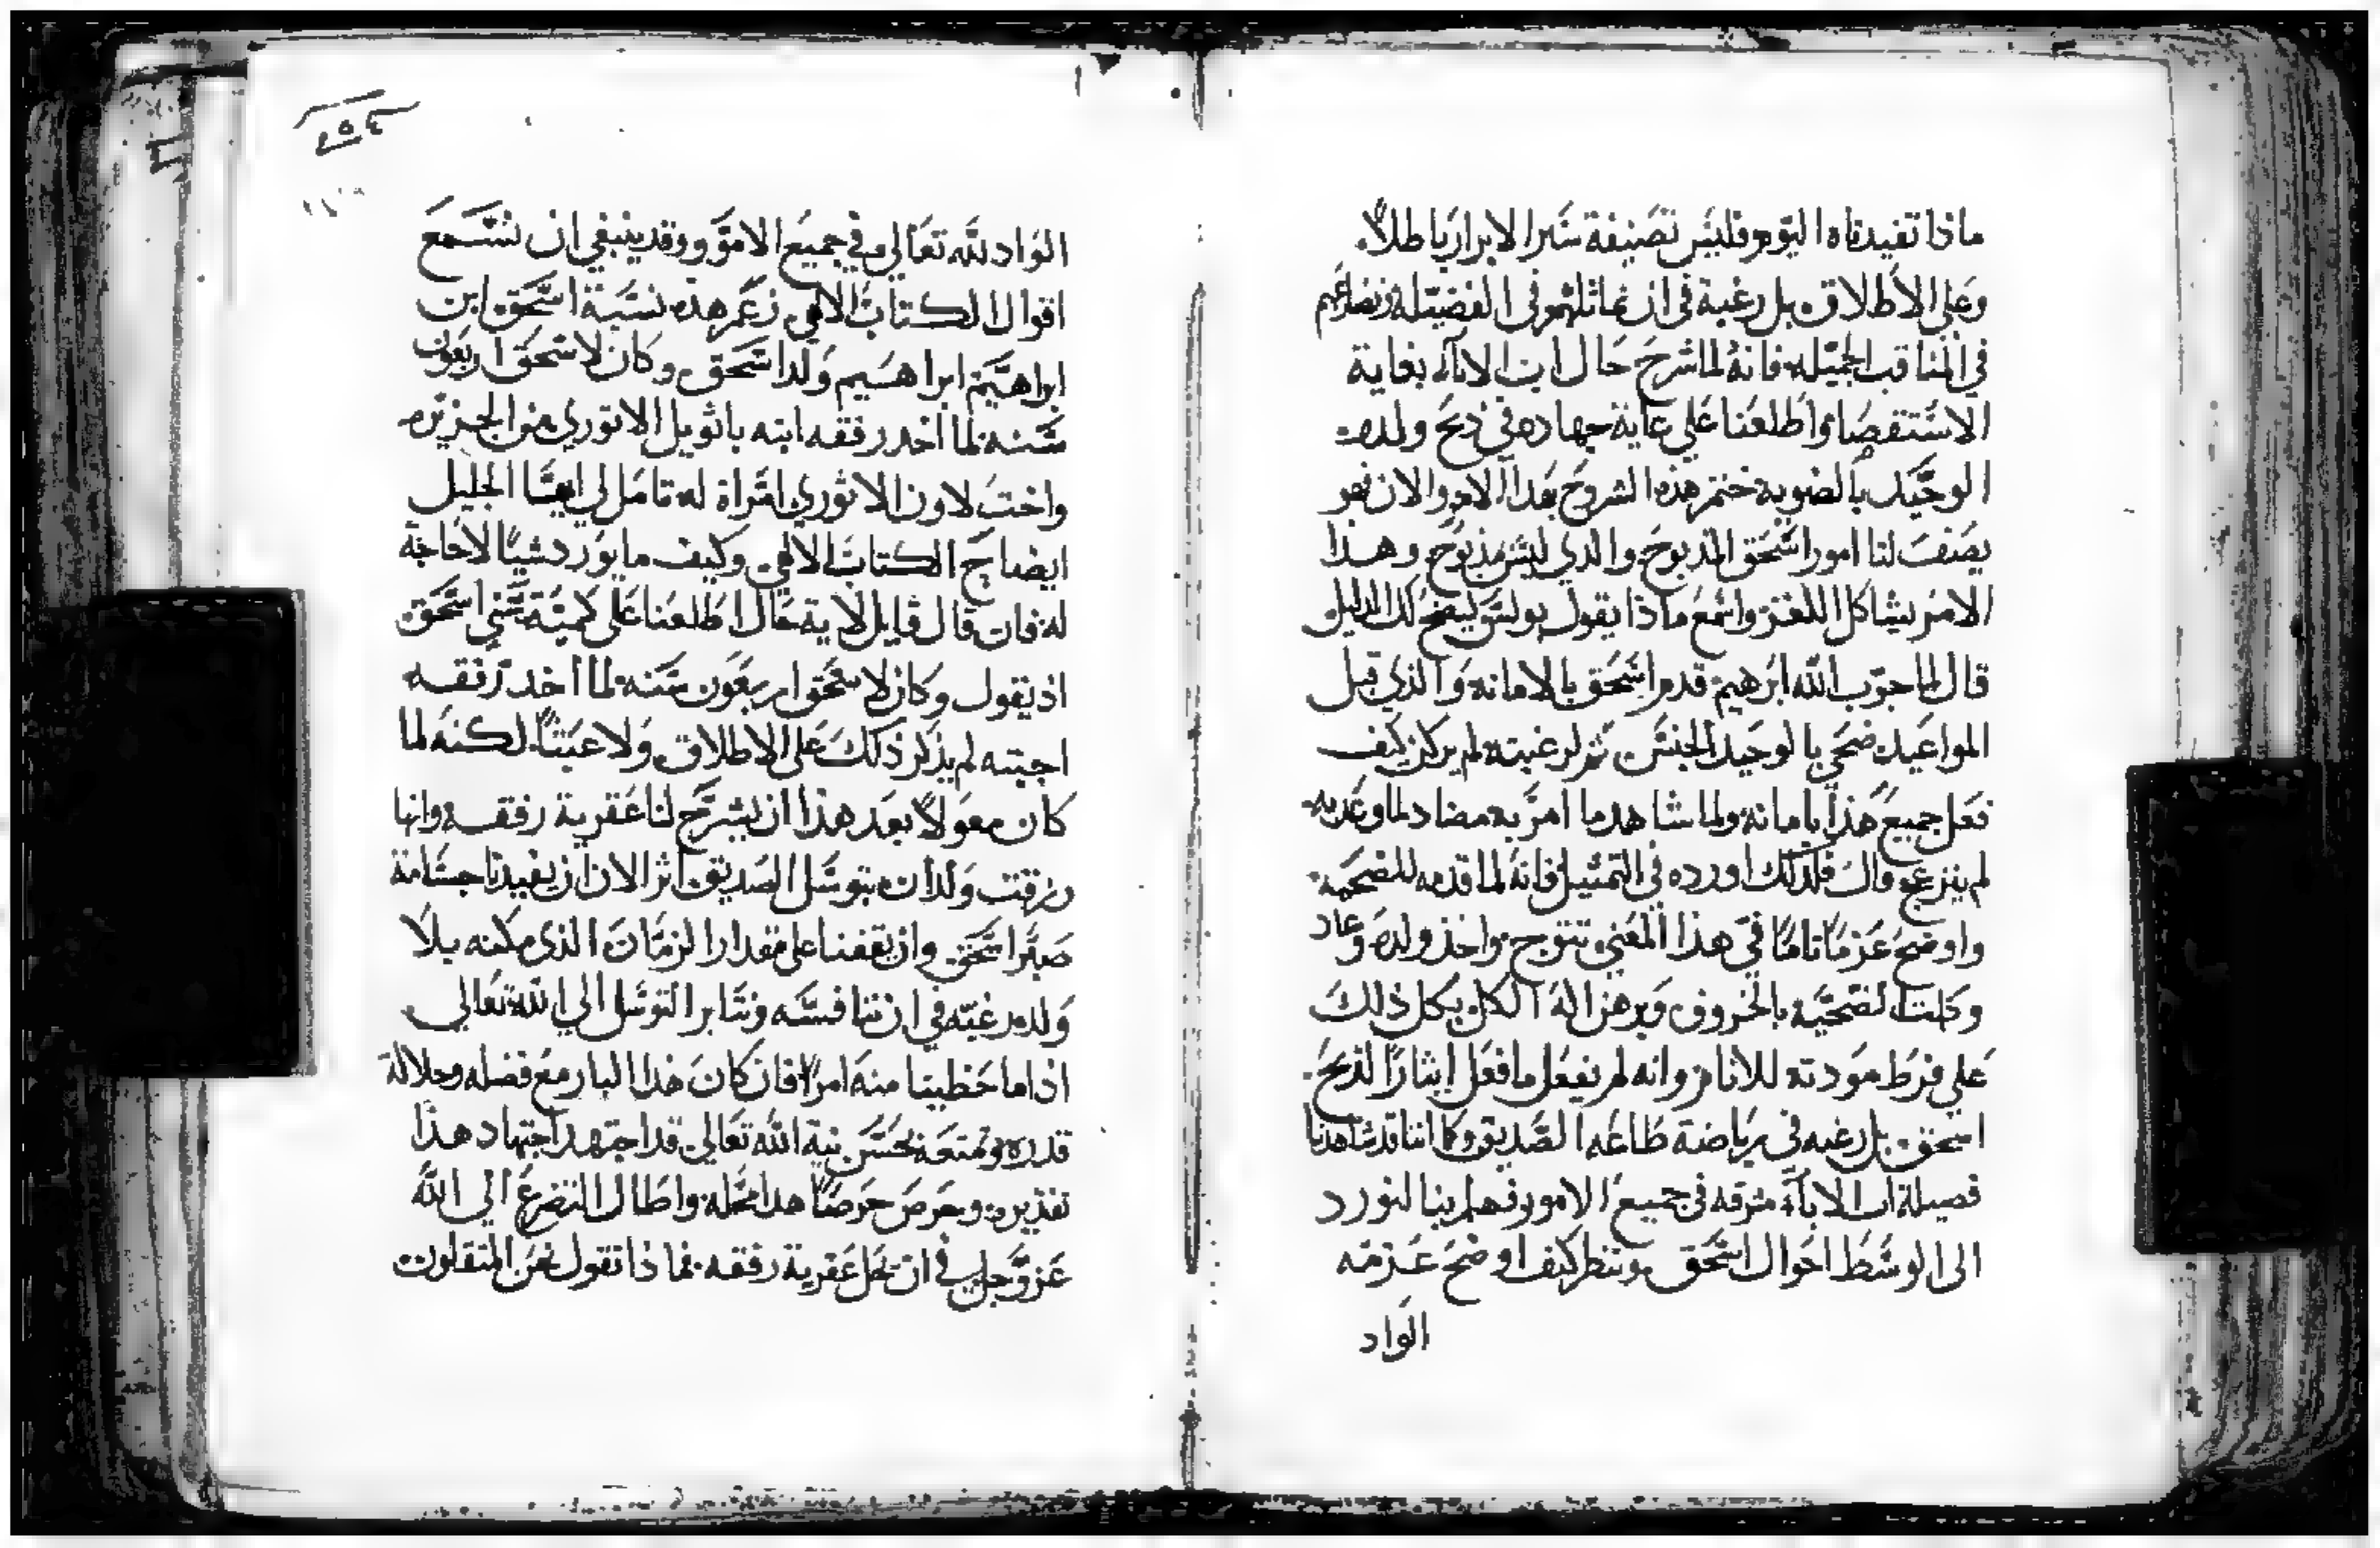 ماذا تفيدناه اليوم فليس تصنيفة سير الابرار باطلاً
وعلي الاطلاق بل رغبة في ان نماثلهم في الفضيله ونضارعهم
في المناقب الجميله فانه لما شرح حال اب الاباء بغاية
الاستقصا واطلعنا علي غاية جهاده في ذبح ولده
الوحيد بالضويه ختم هذه الشروح بعد الامر والان فهو
يصنف لنا امور اسحق المذبوح والذي ليس مذبوح وهذا
الامر يشاكل اللغز واسمع ماذا يقول بولس ليضح لك الدليل
قال لما جرّب الله ابرهيم قدم اسحق بالامانه والذي قبل
المواعيد ضحي بالوحيد الجنس ثم لرغبته لم يركن كيف
فعل جميع هذا بامانه ولما شاهد ما امر به مضاد لما وعد به
لم ينزعج وال فلذلك اورده في التمثيل فانه لما قدمه للضحيه
واوضح عزمًا تامًا في هذا المعني تتوج واخذ ولده وعاد
وكلت الضحيّه بالخروف وبرهن اله الكل بكل ذلك
علي فرط مودته للانام وانه لم يفعل ما فعل ايثارًا لذبح
اسحق بل رغبه في رياضة طاعه الصديق وكما اننا قد شاهدنا
فضيلة اب الاباء مشرقه في جميع الامور فهلم بنا لنورد
الى الوسط احوال اسحق وننظر كيف اوضح عزمه
الواد
الواد لله تعالي في جميع الامور وقد ينبغي ان نستمع
اقوال الكتاب الالهي زعم هذه نسبة اسحق ابن
ابراهيم ابراهيم ولد اسحق وكان لاسحق اربعون
سنه لما اخد رفقه ابنه باثويل الاثوري من الجزيره
واخت لاون الاثوري امراة له تامل لي ايها الجليل
ايضاح الكتاب الالهي وكيف ما يورد شيًا لا حاجة
له فان قال قايل لاية حال اطلعنا علي كمية سني اسحق
اذ يقول وكان لاسحق اربعون سنه لما اخد رفقه
اجبته لم يذكر ذلك على الاطلاق ولا عبثاً لكنه لما
كان معولاً بعد هذا ان يشرح لنا عقرية رفقه وانها
رزقت ولدان بتوسل الصديق اثر الان ان يفيدنا جسامة
صبر اسحق وان يقفنا على مقدار الزمان الذي مكنه بلا
ولد رغبه في ان ننافسه ونثابر التوسل الي الله تعالي
اذا ما خطينا منه امرًا فان كان هذا البار مع فضله وجلالة
قدره وتمتعه بحسن نية الله تعالي قد اجتهد اجتهاد هذا
تقديره وحرص حرصاً هذا محله واطال التضرع الي الله
عز وجل في ان تحل عقرية رفقه فما ذا نقول نحن المثقلون